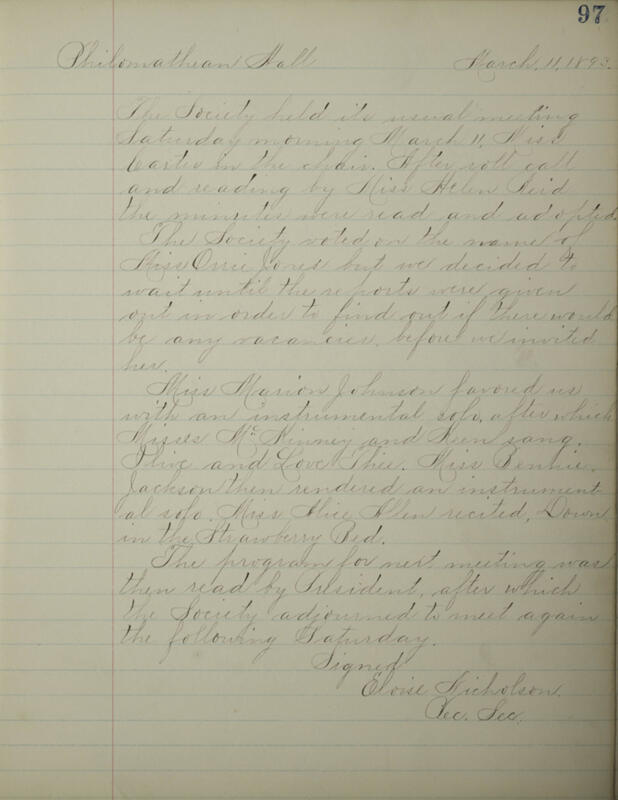 97
Philomathean Hall March. 11, 1893.
The Society held its usual meeting
Saturday morning March 11, Miss
Carter in the chair. After roll call
and reading by Miss Helen Reid
the minutes were read and adopted.
The Society voted on the name of
Miss Orrie Jones but we decided to
wait until the reports were given
out in order to find out if there would
be any vacancies, before we invited
her.
Miss Marion Johnson favored us
with an instrumental solo, after which
Misses McKinney and Keen sang.
I live and Love Thee. Miss Bennie.
Jackson then rendered an instrument
al solo. Miss Alice Allen recited, Down
in the Strawberry Bed.
The program for next meeting was
then read by President, after which
the Society adjourned to meet again
the following Saturday.
Signed
Eloise Nicholson.
Rec. Sec.